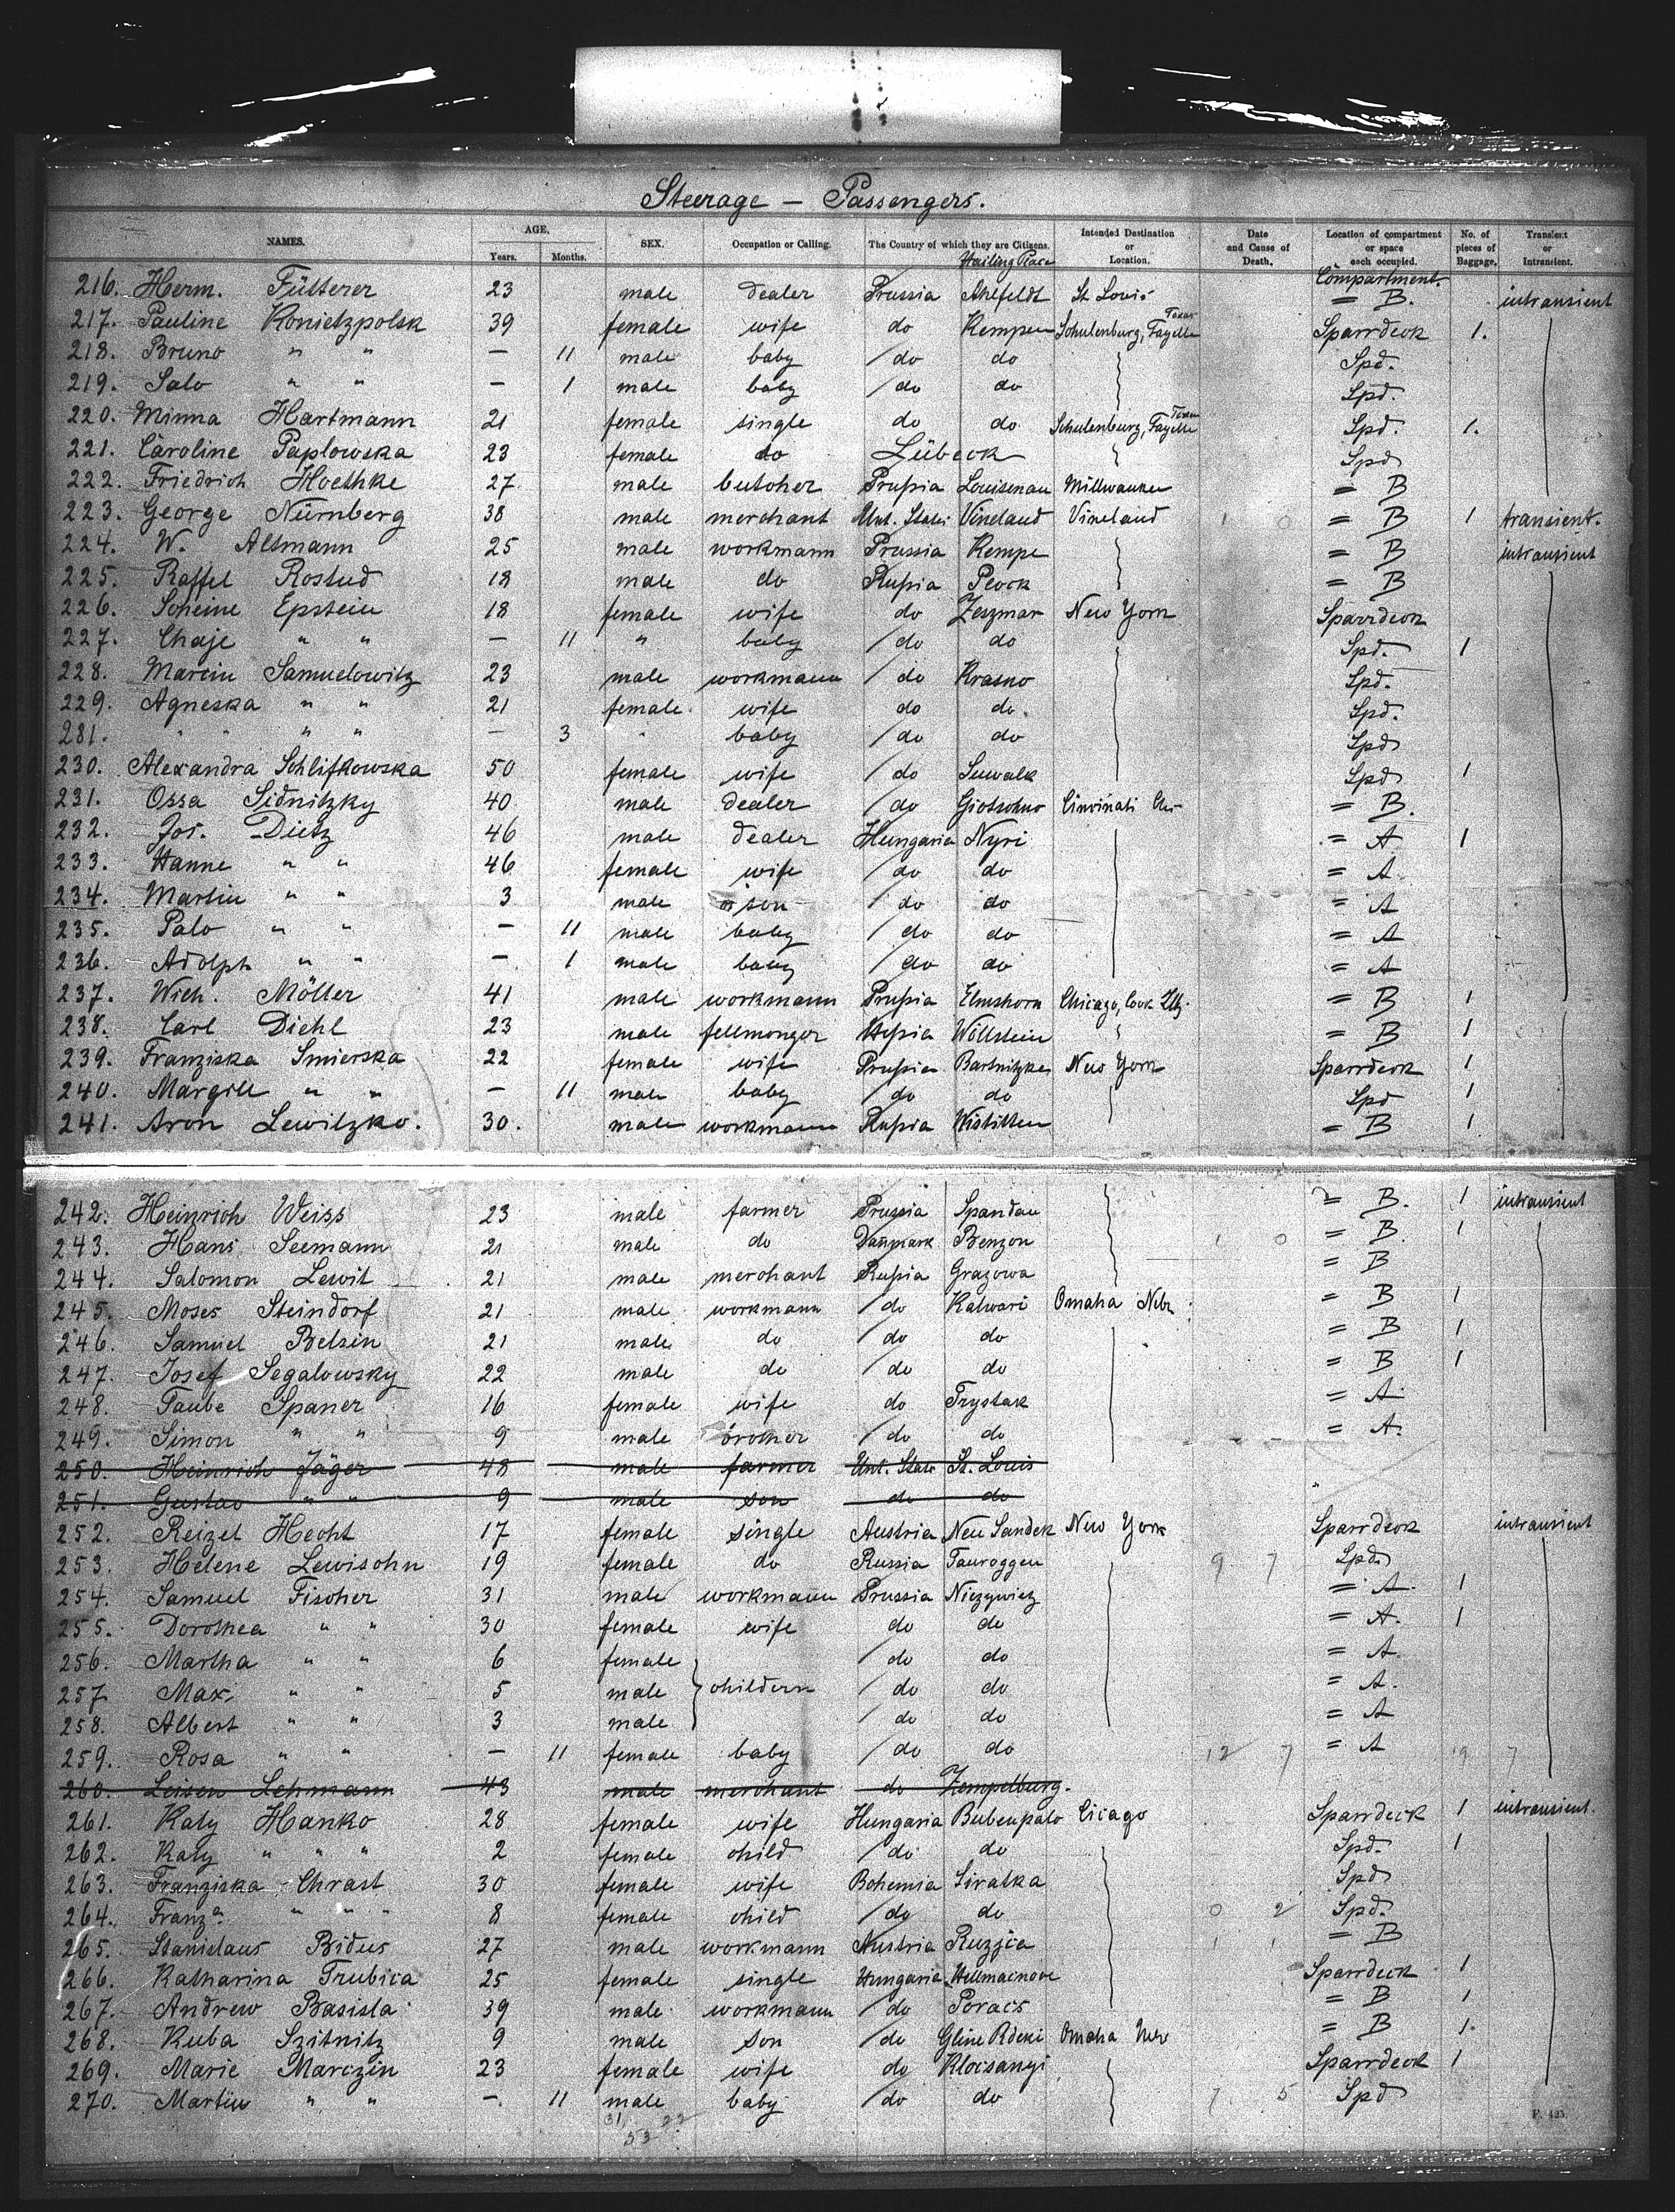 Steerage — Passengers.
NAMES. AGE. SEX. Occupation or Calling. The Country of which they are Citizens. Intended Destination or Location. Date and Cause of Death. Location of compartment or space each occupied. No. of pieces of Baggage. Transient or Intransient.
Years. Months. Hailing Place Compartment.
216. Herm. Fütterer 23 male dealer Prussia Ahlfeldt St Louis = B. intransient
217. Pauline Konietzpolsk 39 female wife do Kempen Schulenburg, Fayette Texas Sparrdeck 1.
218. Bruno " " — 11 male baby do do Spd.
219. Salo " " — 1 male baby do do Spd.
220. Minna Hartmann 21 female single do do Schulenburg, Fayette Texas Spd. 1.
221. Caroline Paplowska 23 female do Lübeck Spd
222. Friedrich Hoethke 27 male butcher Prussia Louisenau Millwaukee = B
223. George Nürnberg 38 male merchant Unt. States Vineland Vineland 1 0 = B 1 transient.
224. W. Altmann 25 male workmann Prussia Kempe = B intransient
225. Raffel Rostud 18 male do Russia Plock = B
226. Scheine Epstein 18 female wife do Zeszmar New York Sparrdeck
227. Chaje " " — 11 " baby do do Spd. 1
228. Marcin Samuelowitz 23 male workmann do Krasno Spd.
229. Agneska " " 21 female wife do do. Spd.
281. " " " " — 3 " baby do do Spd
230. Alexandra Schlifkowska 50 female wife do Suwalk Spd 1
231. Ossa Sidnitzky 40 male dealer do Cincinati = B.
232. Jos. Dietz 46 male dealer Hungaria Nyri = A 1
233. Hanne " " 46 female wife do do = A
234. Martin " " 3 male son do do = A
235. Palo " " — 11 male baby do do = A
236. Adolph " " — 1 male baby do do = A
237. Wich. Möller 41 male workmann Prussia Elmshorn Chicago, Cook Ills. = B 1
238. Carl Diehl 23 male fellmonger Hessia Wöllstein = B 1
239. Franziska Smierska 22 female wife Prussia Bartnitzke New York Sparrdeck 1
240. Margill " " — 11 male baby do do Spd 1
241. Aron Lewitzko. 30. male workmann Russia Wistitten = B 1
242. Heinrich Weiss 23 male farmer Prussia Spandau = B. 1 intransient
243. Hans Seemann 21 male do Danmark Benzon 1 0 = B. 1
244. Salomon Lewit 21 male merchant Russia Grazowa = B
245. Moses Steindorf 21 male workmann do Kalwari Omaha Nebr. = B 1
246. Samuel Belsin 21 male do do do = B 1
247. Josef Segalowsky 22 male do do do = B 1
248. Taube Spaner 16 female wife do Trystak = A
249. Simon " " 9 male brother do do = A.
250. Heinrich Jäger 48 male farmer Unt. State St. Louis
251. Gustav " " 9 male son do do
252. Reizel Hecht 17 female single Austria Neu Sandek New York Sparrdeck intransient
253. Helene Lewisohn 19 female do Russia Tauroggen 9 7 Spd.
254. Samuel Fischer 31 male workmann Prussia Niezywicz = A. 1
255. Dorothea " " 30 female wife do do = A. 1
256. Martha " " 6 female do do = A.
257. Max " " 5 male childern do do = A.
258. Albert " " 3 male do do = A
259. Rosa " " — 11 female baby do do 12 7 = A 19 7
260. Leisen Lehmann 43 male merchant do Zempelburg.
261. Katy Hanko 28 female wife Hungaria Bubenpalo Cicago Sparrdeck 1 intransient.
262. Katy " " " 2 female child do do Spd. 1
263. Franziska Chrast 30 female wife Bohemia Siratka Spd
264. Franz.a " " " 8 female child do do 0 2 Spd.
265. Stanislaus Bidus 27 male workmann Austria Ruzjia 1 1 = B
266. Katharina Trubica 25 female single Hungaria Sparrdeck 1
267. Andrew Basista 39 male workmann do Poracs = B 1
268. Kuba Szitnitz 9 male son do Gline Rdeki Omaha Nebr = B 1.
269. Marie Marczin 23 female wife do Klocsanyi Sparrdeck 1
270. Martin " " — 11 male baby do do 7 5 Spd
31 22
53
F. 425.